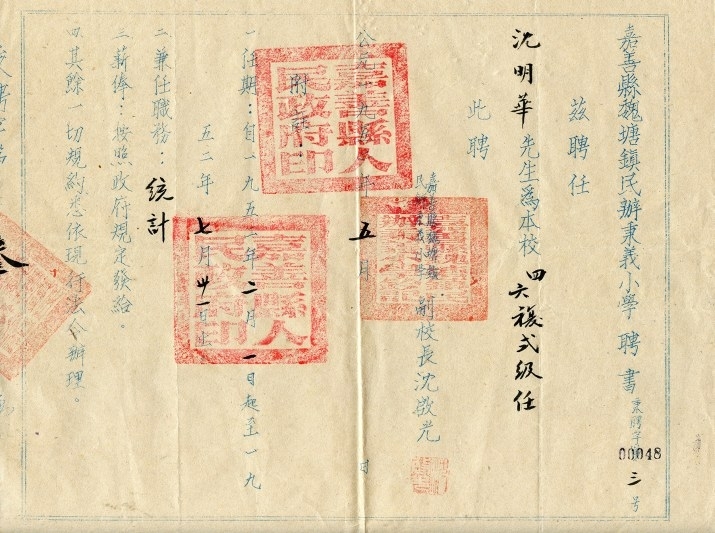 嘉善縣魏塘鎮民辦秉義小學聘書
秉聘字第三號
00048
茲聘任
沈明華先生為本校四六複式級任
此聘
副校長沈啟光
公元一九五 年五月 日
附
一任期：自一九五 年二月一日起至一九
五二年七月卅一日止
二兼任職務：統計
三薪俸：按照政府規定發給。
四其餘一切規約悉依現行法令辦理。
嘉善縣人民政府印
嘉善縣人民政府印